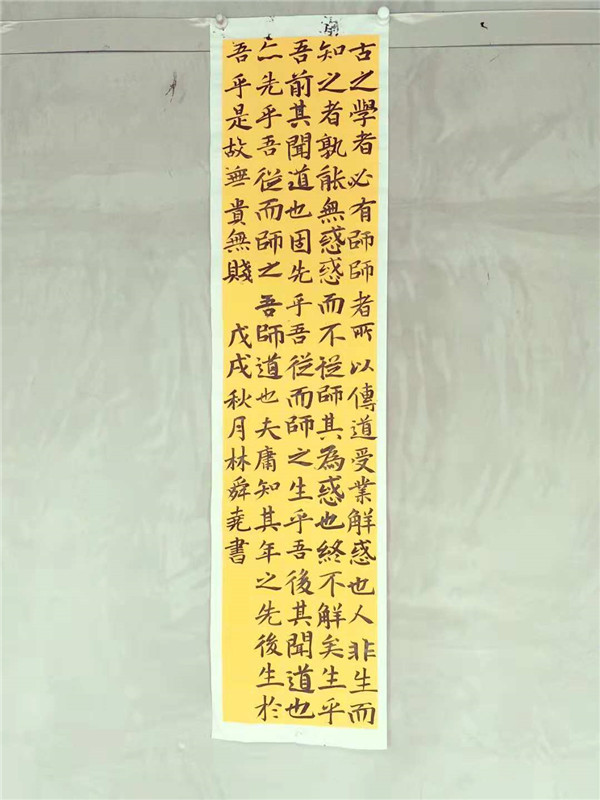 古之學者必有師師者所以傳道受業解惑也人非生而
知之者孰能無惑惑而不從師其為惑也終不解矣生乎
吾前其聞道也固先乎吾從而師之生乎吾後其聞道也
亦先乎吾從而師之吾師道也夫庸知其年之先後生於
吾乎是故無貴無賤 戊戌秋月林舜堯書